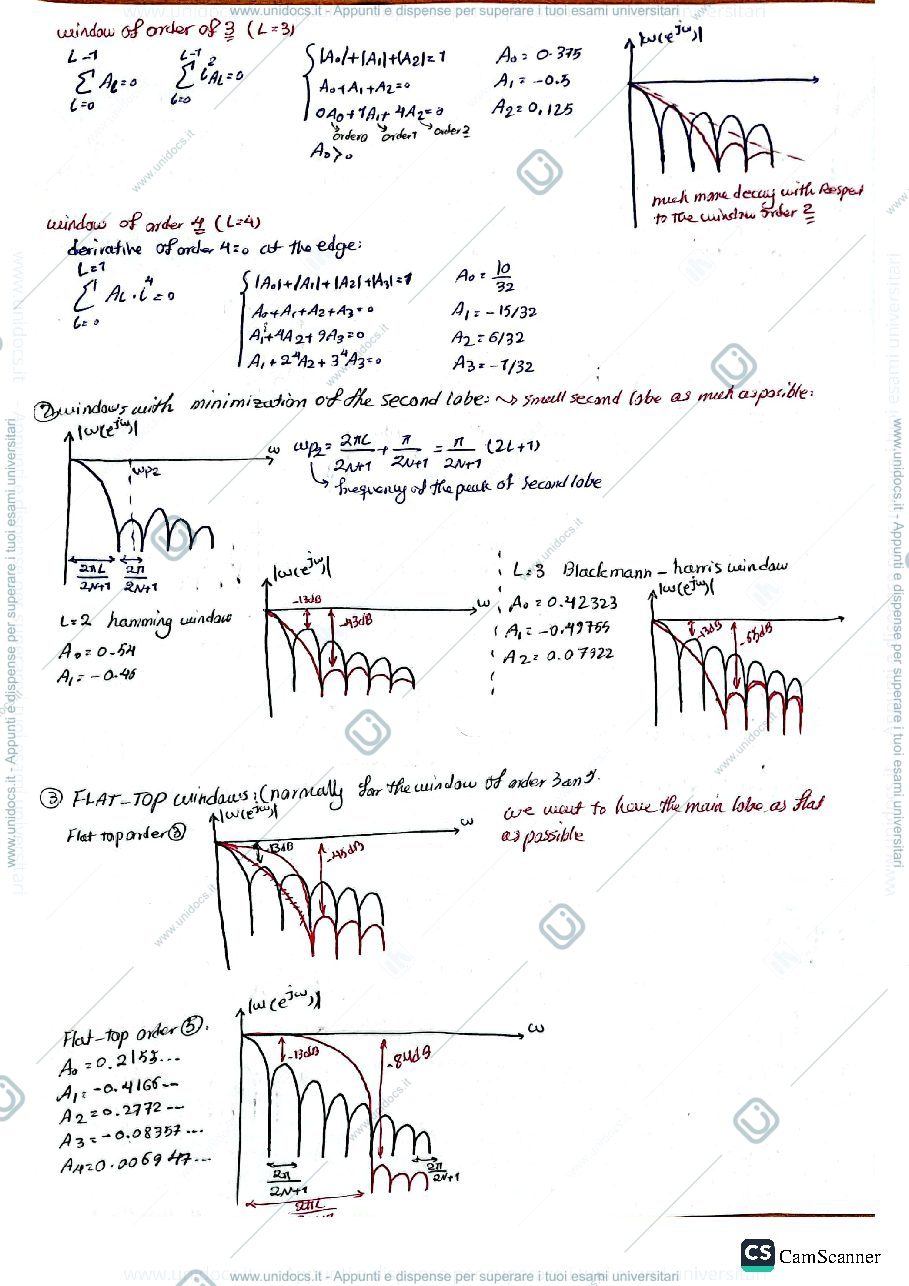 www.unidocs.it - Appunti e dispense per superare i tuoi esami universitari
window of order of 3 (L=3)
L-1
∑ AL=0
L=0
L-1
∑ i²AL=0
L=0
|A0|+|A1|+|A2|=1
A0+A1+A2=0
0A0+1A1+4A2=0
order0 order1 order2
A0>0
A0= 0.375
A1= -0.5
A2=0.125
|w(e^jω)|
much more decay with Respect
to the window order 2
window of order 4 (L=4)
derivative of order 4=0 at the edge:
L=1
∑ AL·i⁴=0
L=0
|A0|+|A1|+|A2|+|A3|=1
A0+A1+A2+A3=0
A1+4A2+9A3=0
A1+2⁴A2+3⁴A3=0
A0= 10/32
A1= -15/32
A2= 6/32
A3= -1/32
② windows with minimization of the second lobe: ~> small second lobe as much as possible:
|w(e^jω)|
ω
ωp2
2πL/2N+1
2π/2N+1
ωp2= 2πL/2N+1 + π/2N+1 = π/2N+1 (2L+1)
frequency of the peak of second lobe
L=2 hamming window
A0=0.54
A1= -0.46
|w(e^jω)|
ω
-13dB
-43dB
L=3 Blackmann-harris window
A0=0.42323
A1=-0.49755
A2=0.07922
|w(e^jω)|
-13dB
③ FLAT-TOP windows: (normally for the window of order 3 and 5.
we want to have the main lobe as flat
as possible
Flat top order ③
|w(e^jω)|
ω
-13dB
Flat-top order ⑤.
A0=0.2155...
A1=-0.4166...
A2=0.2772...
A3=-0.08357...
A4=0.006947...
|w(e^jω)|
ω
-13dB
-84dB
2π/2N+1
2π/2N+1
2πL
CS CamScanner
www.unidocs.it - Appunti e dispense per superare i tuoi esami universitari